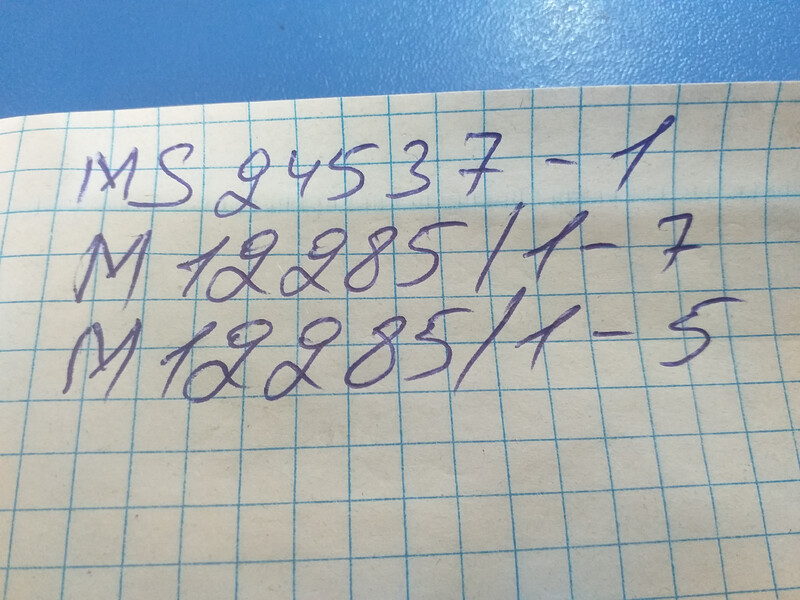 MS 24537 - 1
M 12285/1 - 7
M 12285/1 - 5